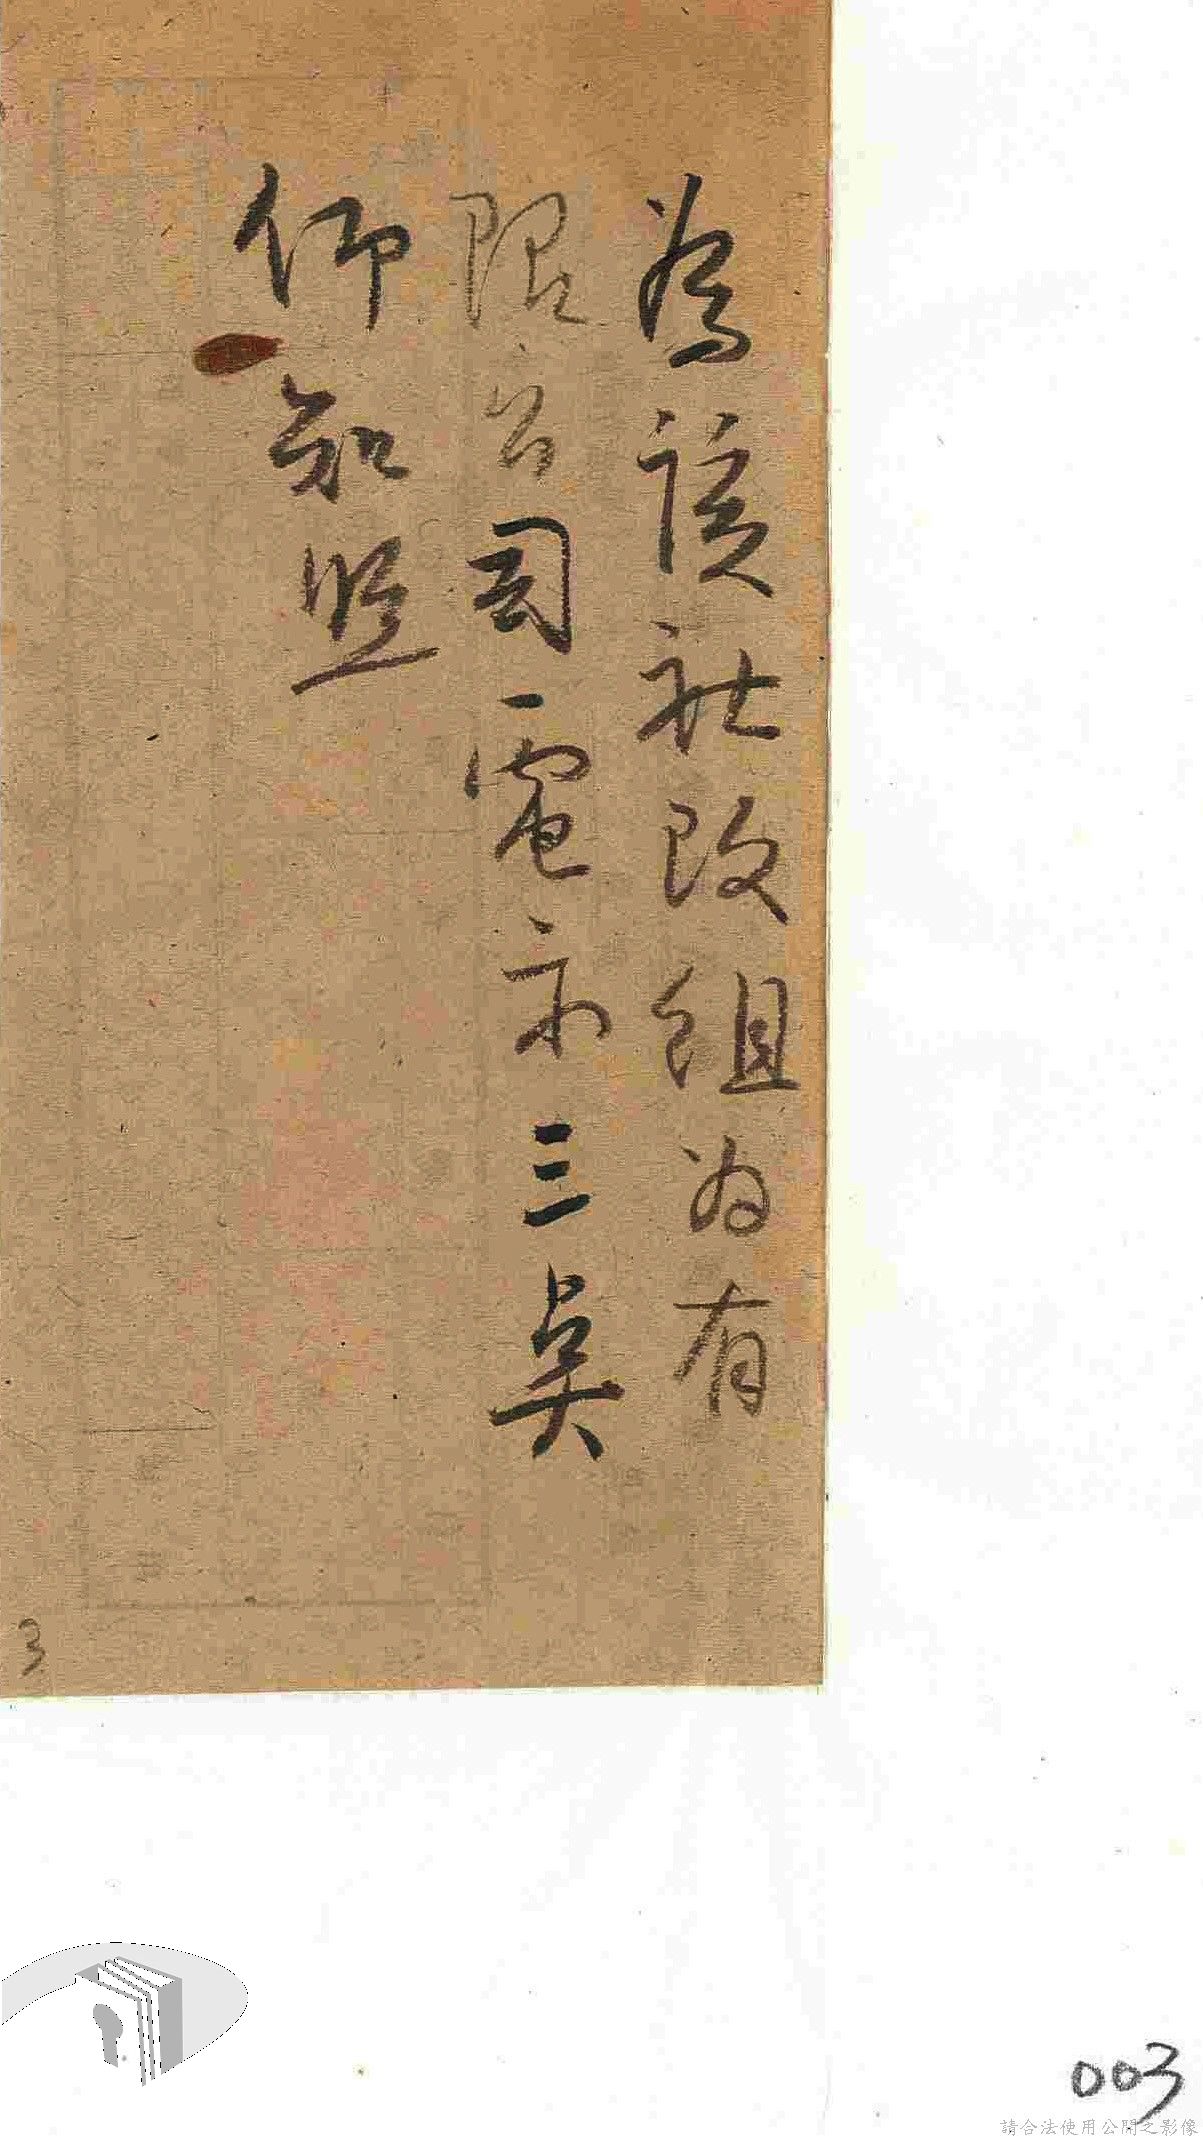 為該社改組為有
限公司電示三奌
仰知照
3
003
請合法使用公開之影像